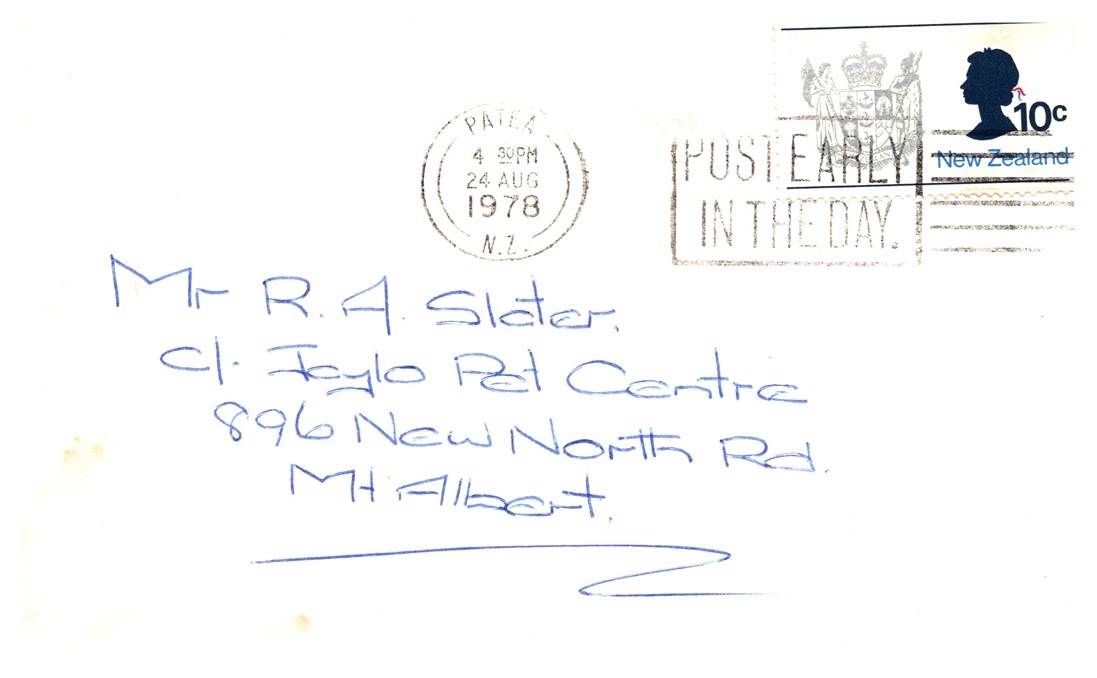 10c
New Zealand
PATEA
4 30PM
24 AUG
1978
N.Z.
POST EARLY
IN THE DAY.
Mr R. A. Slater.
c/. Jaylo Pet Centre
896 New North Rd.
Mt Albert.